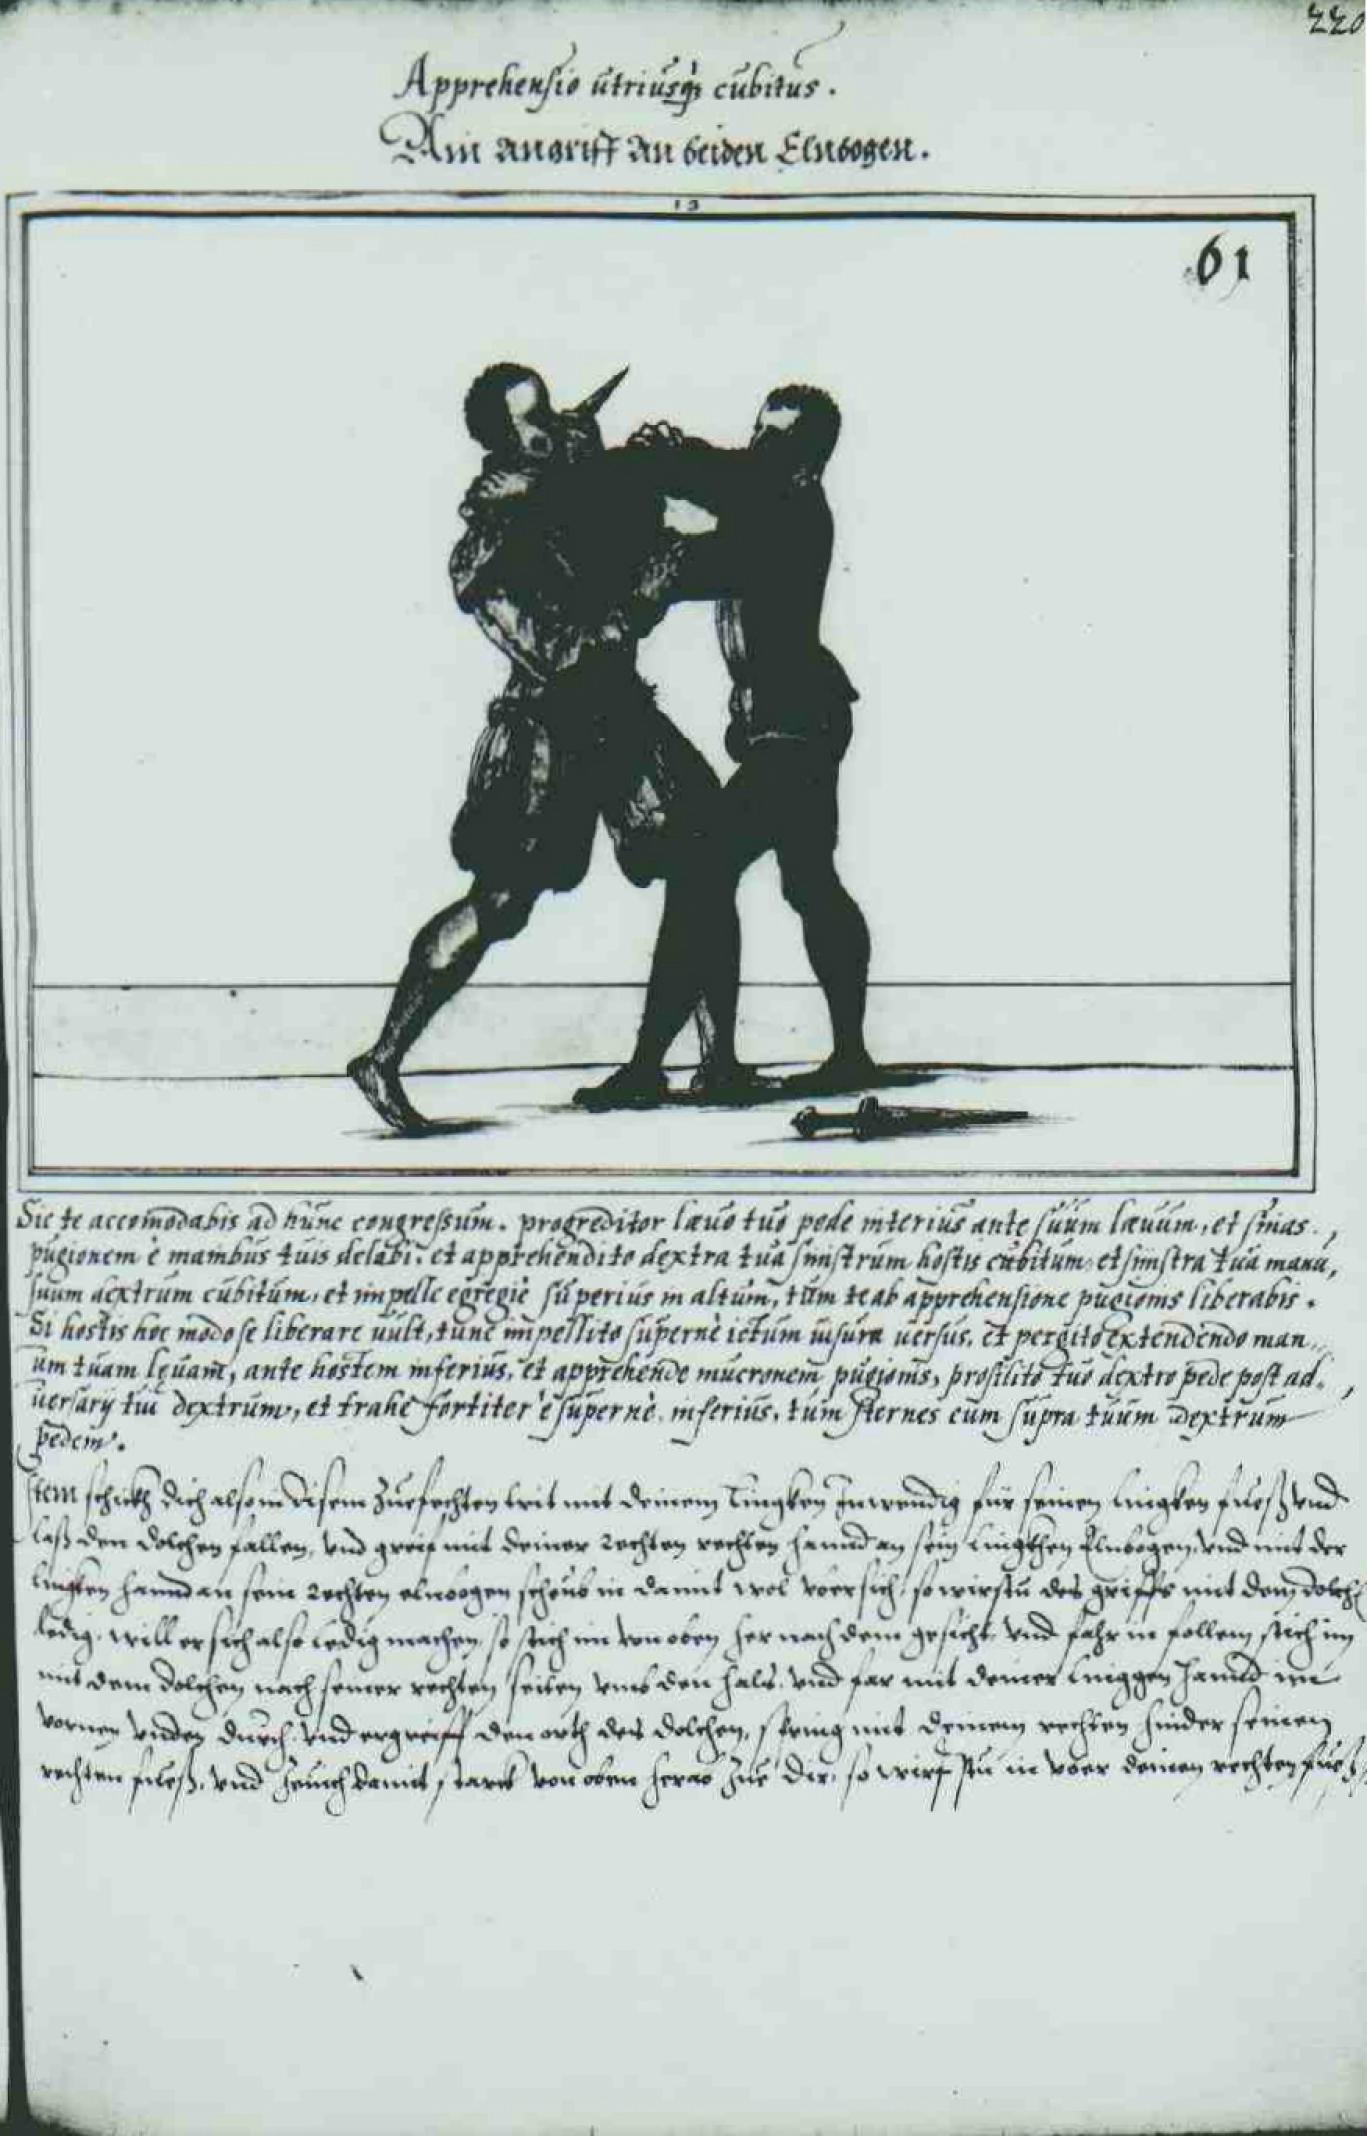 220
Apprehensio utriusq́ꝫ cubitus.
Ain angriff an beiden Elnbogen.
13
61
Sic te accomodabis ad hunc congressum. progreditor læuo tuo pede interius ante suum læuum, et sinas
pugionem è manibus tuis delabi. et apprehendito dextra tua sinistrum hostis cubitum, et sinistra tua manu,
suum dextrum cubitum, et impelle egregiè superius in altum, tum te ab apprehensione pugionis liberabis.
Si hostis hoc modo se liberare uult, tunc impellito supernè ictum uersus, et pergito extendendo man
um tuam lęuam, ante hostem inferius, et apprehende mucronem pugionis, prosilito tuo dextro pede post ad
uersarij tui dextrum, et trahe fortiter è supernè inferius, tum sternes eum supra tuum dextrum
pedem.
Item schickh dich also in disem Zuefechten trit mit deinem Lingken Inwendig für seinen lingken fuesß vnd
lasß den dolchen fallen, vnd greif mit deiner Rechten rechten hannd an sein lingkhen Elnbogen, vnd mit der
lingken hannd an sein Rechten elnbogen scheub in damit wol vbersich, so wirstu des griffs mit dem dolch
ledig. will er sich also ledig machen, so stich im von oben her nach dem gesicht, vnd fahr in follem stich im
mit dem dolchen nach seiner rechten seiten vmb den hals, vnd far mit deiner linggen hannd im
vornen vnden durch, vnd ergreiff den orth des dolchen, spring mit deinem rechten hinder seinen
rechten fuesß, vnd zeuch damit starck von oben herab zue dir, so wirfstu in vber deinen rechten fuesß